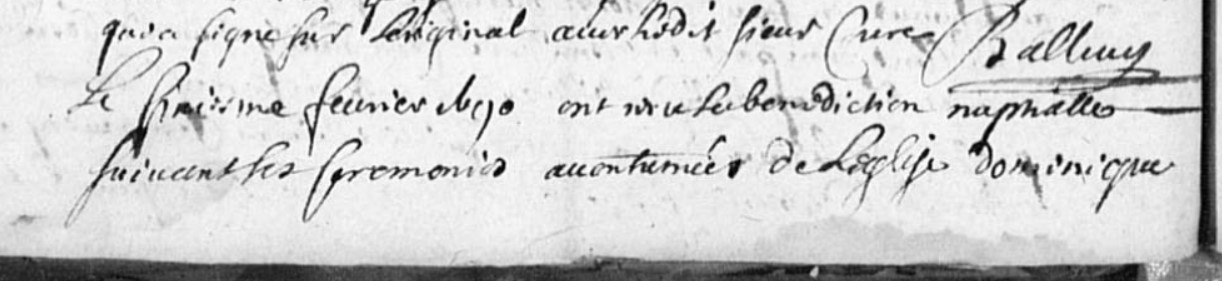 qui a signé sur Loriginal avec Ledit sieur Curé Ballury
Le sixiesme feurier ont receu La benediction nuptialle
suivant Les seremonies accoutumées de Leglise dominique